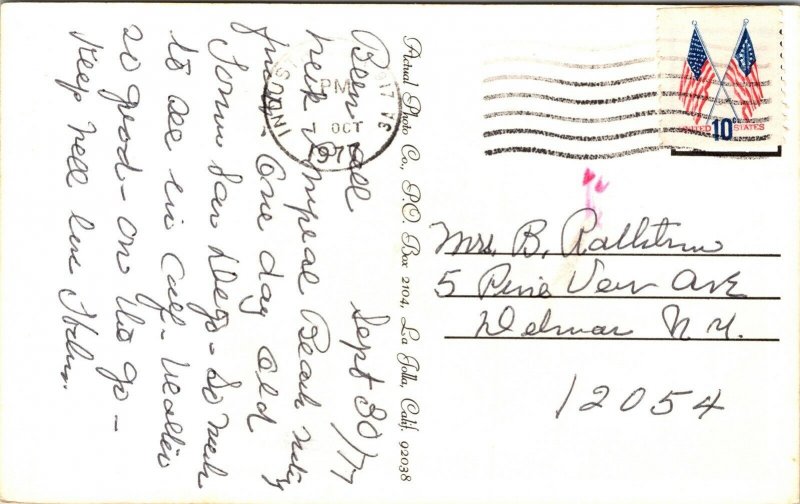 Been Well Sept 30/77
Week Imperial Beach
friday One day old
San Diego - So much
to see in Calif - Weather
so good - on the go -
Keep Well Love
Actual Photo Co., P.O. Box 2104, La Jolla, Calif. 92038
INDUST
PM
7 OCT
197
UNITED 10c STATES
Mrs. B.
5 Pine View Ave
Delmar N.Y.
12054